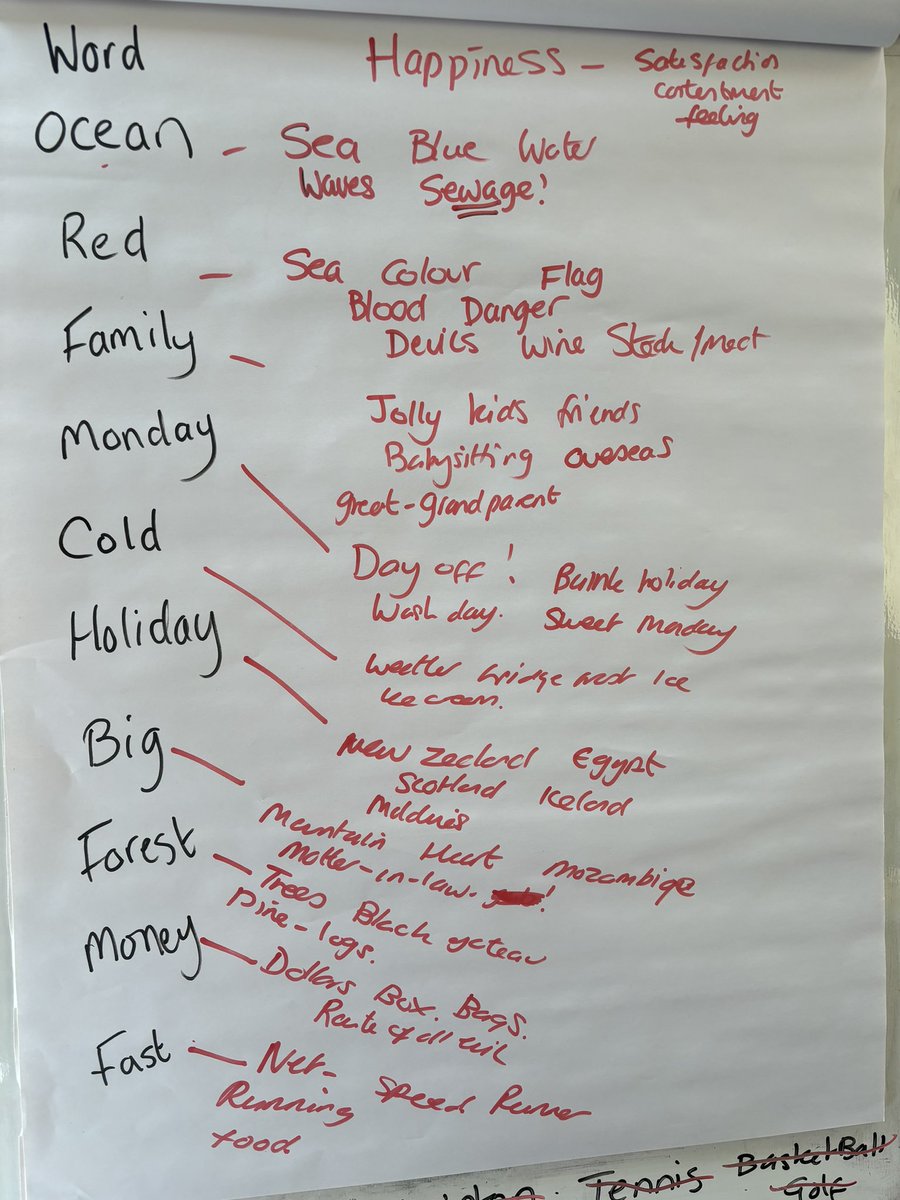 Word Happiness - Satesfaction
contentment
feeling
Ocean - Sea Blue Water
Waves Sewage!
Red - Sea Colour Flag
Blood Danger
Devils Wine Steak/Meat
Family -
Jolly kids friends
Babysitting overseas
great-grandparent
Monday
Day off! Bank holiday
Wash day. Sweet Monday
Cold
Weather fridge nest Ice
Ice cream.
Holiday
New Zealand Egypt
Scotland Iceland
Maldives
Big
Mountain Heart Mozambiqe
Mother-in-law- !
Forest - Trees Black gateau
pine-logs.
Money - Dollars Box. Bags.
Route of all evil
Fast - Net-
Running Speed Runner
food
Tennis BasketBall
Golf